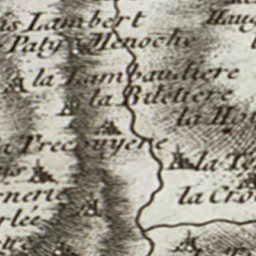 is Lambert
Haug
Paty Menoche
la Lambaudiere
la Biletiere
la Hou
la Precouyere
la Te
la Cro
nerie
rlée